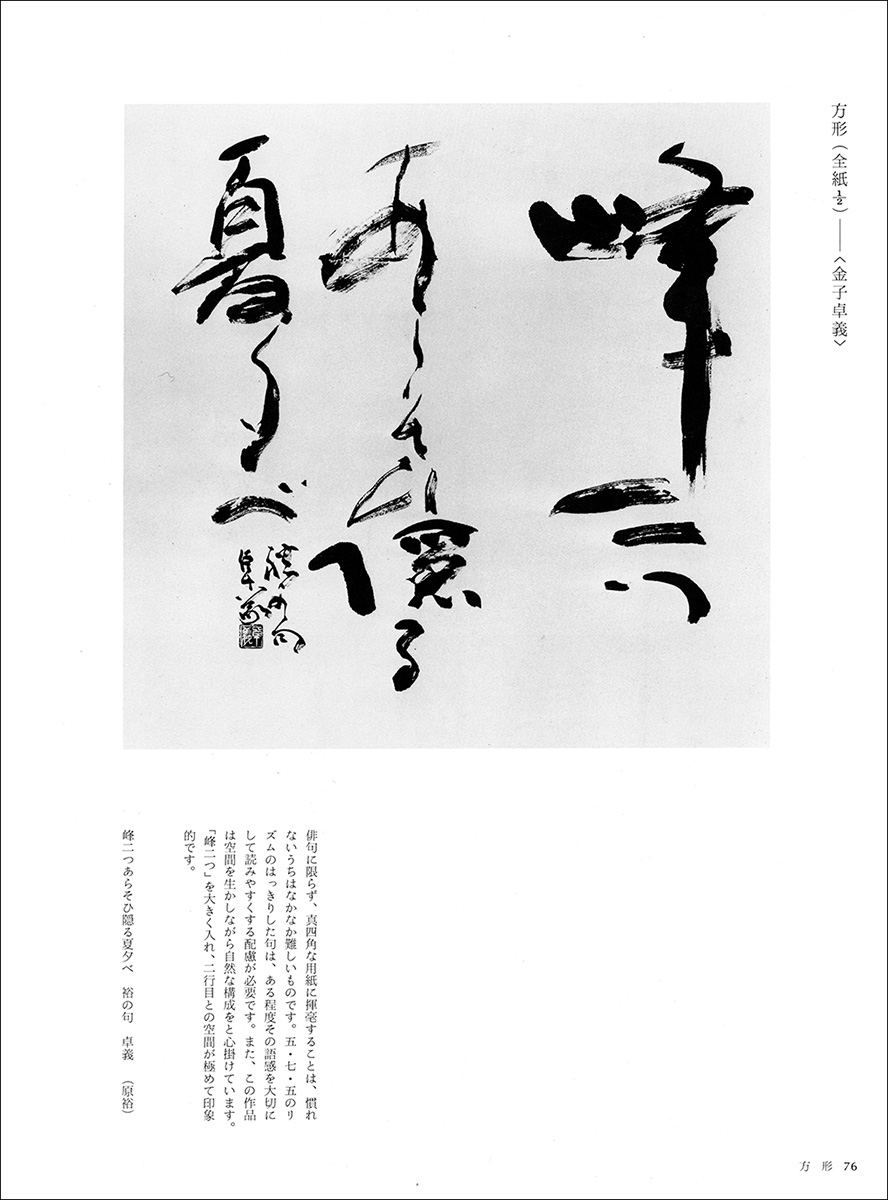 方形（全紙½）——〈金子卓義〉
峰二つ
あらそひ隠る
夏夕べ
裕の句
卓義
俳句に限らず、真四角な用紙に揮毫することは、慣れ
ないうちはなかなか難しいものです。五・七・五のリ
ズムのはっきりした句は、ある程度その語感を大切に
して読みやすくする配慮が必要です。また、この作品
は空間を生かしながら自然な構成をと心掛けています。
「峰二つ」を大きく入れ、二行目との空間が極めて印象
的です。
峰二つあらそひ隠る夏夕べ　裕の句　卓義　（原裕）
方形 76